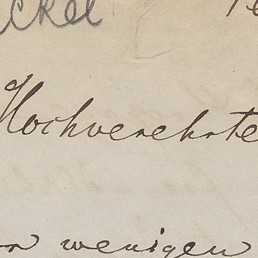 ckel
Hochverehrte
wenigen